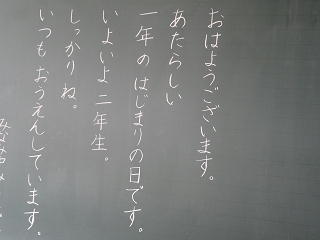 おはようございます。
あたらしい
一年のはじまりの日です。
いよいよ二年生。
しっかりね。
いつもおうえんしています。